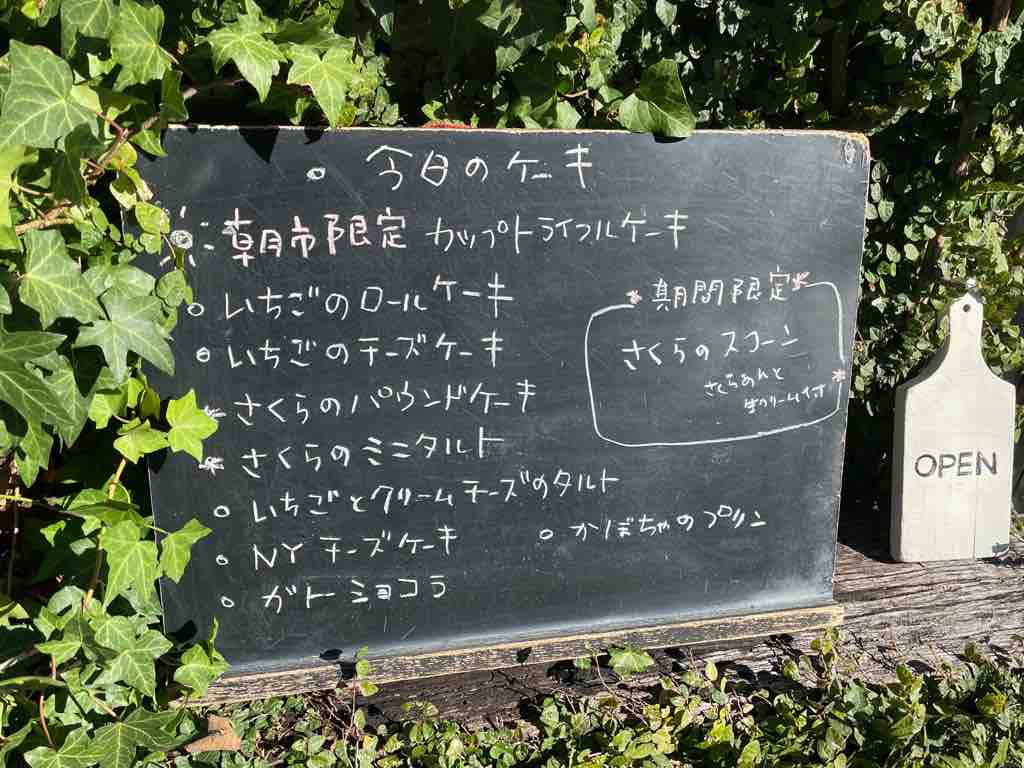 今日のケーキ
朝市限定 カップトライフルケーキ
いちごのロールケーキ
いちごのチーズケーキ
さくらのパウンドケーキ
さくらのミニタルト
いちごとクリームチーズのタルト
NY チーズケーキ
ガトーショコラ
かぼちゃのプリン
期間限定
さくらのスコーン
さくらあんと
生クリーム付き
OPEN